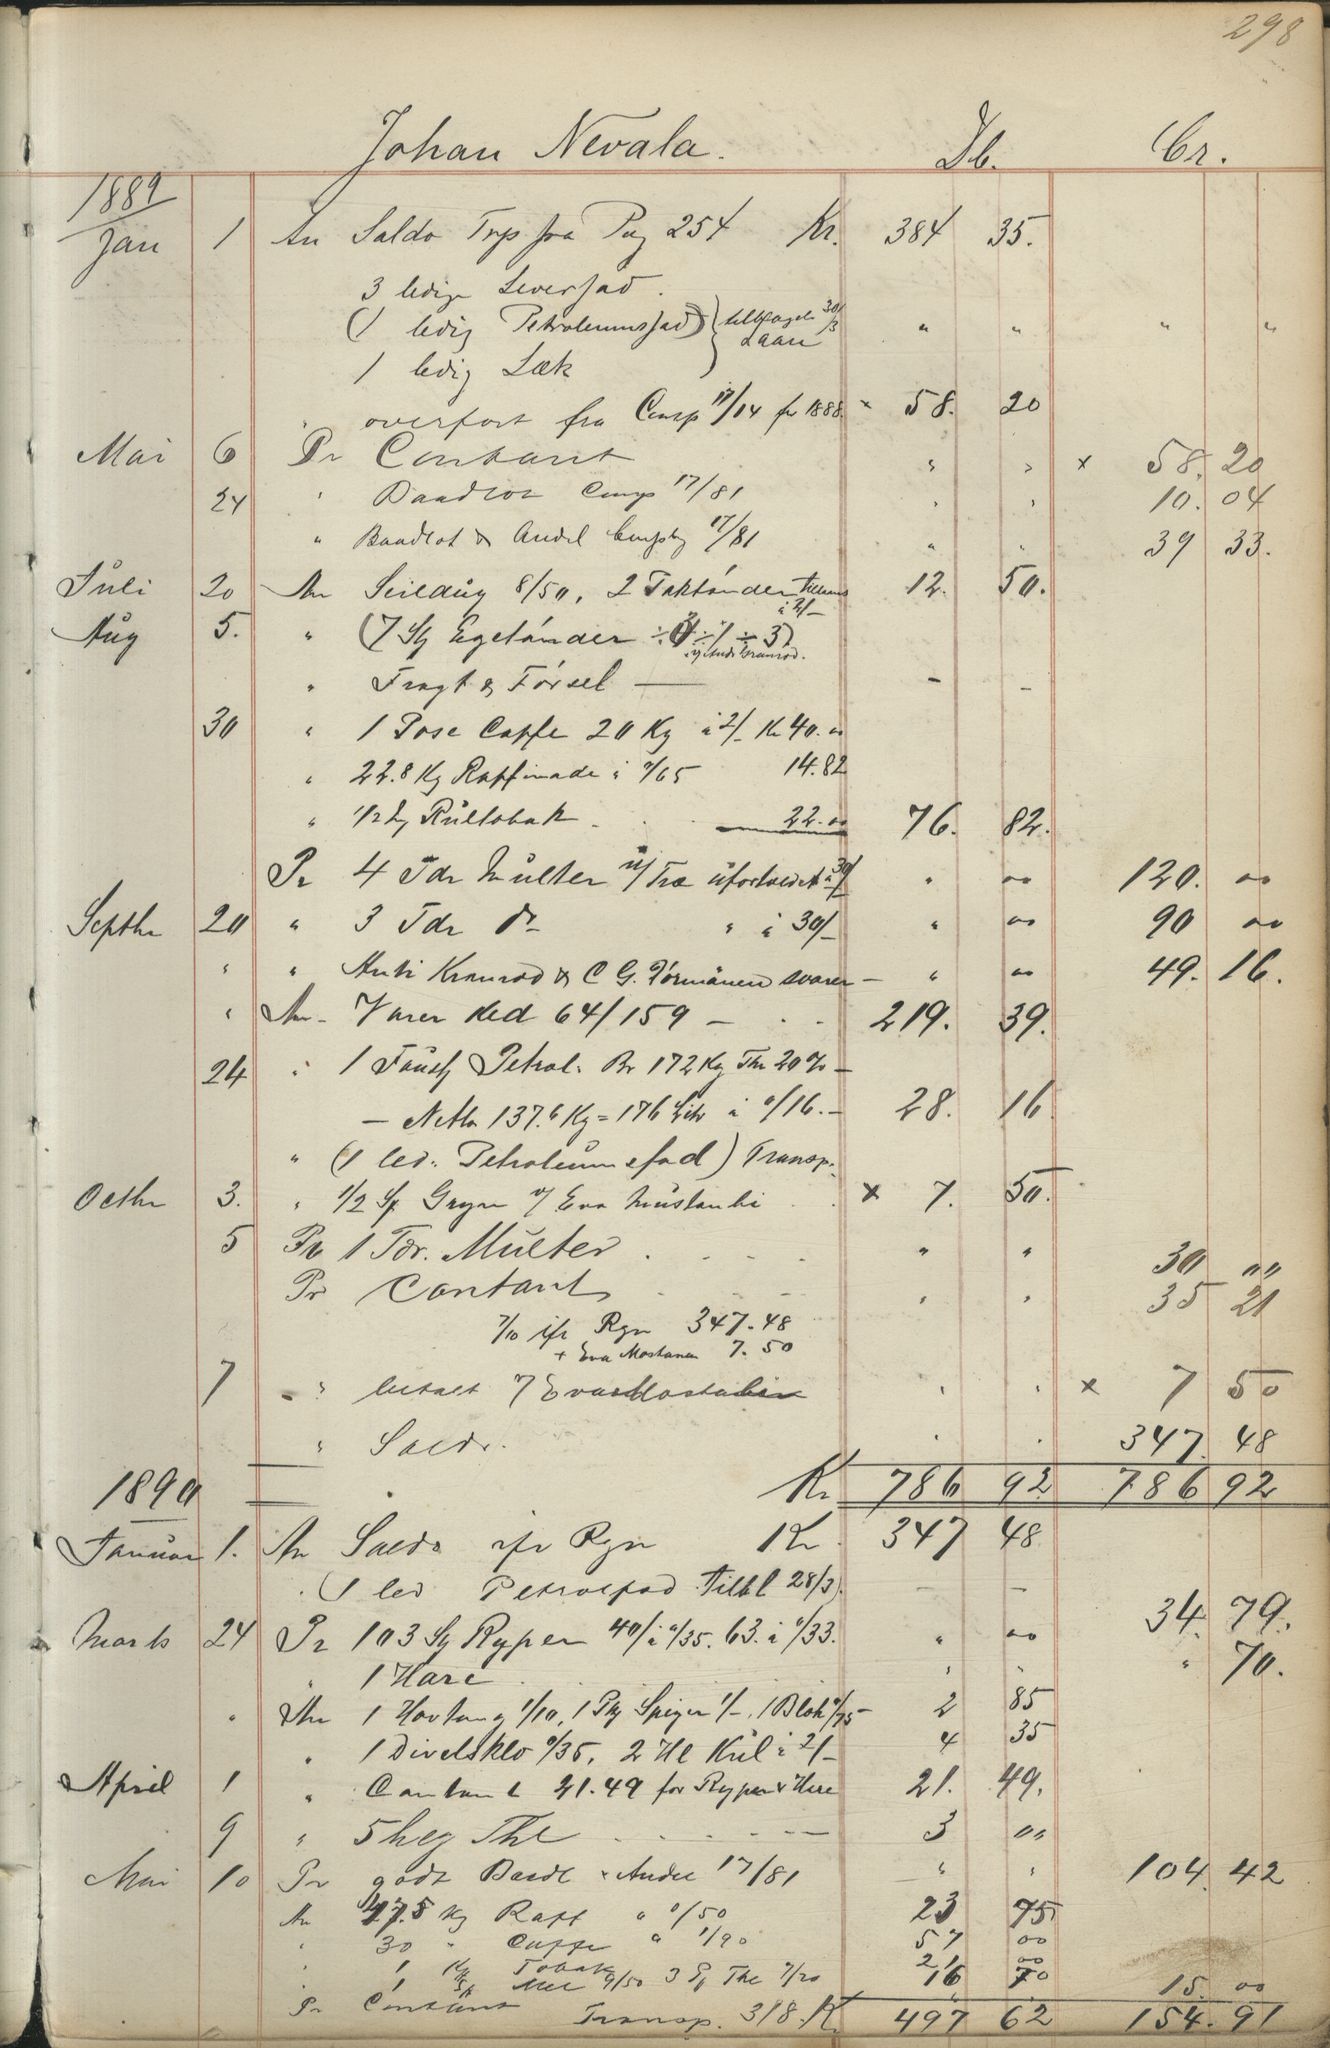 298
Johan Nevala. Db. Cr.
1889
Jan 1 An Saldo Trp. fra Pag 254 Kr. 384 35.
3 ledige Leverfad.
(1 ledig Petroleumsfad) tilbagel. 30/3 " " " "
1 ledig Sæk
" overfort fra Comp 17/14 for 1888. × 58. 20
Mai 6 Pr Contant " " × 58. 20
24 " Baadlot Comp 17/81 " " 10. 04
" Baadlot & Andel Compg 17/81 " " 39 33.
Juli 20 An Seildug 8/50, 2 Taktønder tillans à 2/- 12. 50.
Aug 5. " (7 St Egetønder ÷ ÷ 1 ÷ 3)
" Fragt & Førsel — - -
30 " 1 Pose Caffe 20 Kg à 2/- Kr 40. 00
" 22.8 Kg Raffinade à "/65 14.82
" 1/2 Rultobak . . 22.00 76. 82.
Pr 4 Tdr Multer u/ Træ à 30/- " 00 120. 00
Septbr 20 " 3 Tdr do " à 30/- " 00 90 00
" " Anti Kranrod & C G. svarer — " 00 49. 16.
" An Varer Ked 64/159 — . . 219. 39.
24 " 1 Petrol. Br 172 Kg Thr 20% —
— Netto 137.6 Kg = 176 Litr à "/16. — 28. 16
" (1 led. Petroleumsfad) Transp.
Octbr 3. " 1/2 Sk Gryn v/ Eva . . × 7. 50.
5 Pr 1 Tdr. Multer . . . . " " 30 ""
Pr Contant . . . " " 35 21
7/10 ifr Rgn 347.48
+ Eva 7.50
7 - " betalt v/ Eva " " × 7 50
" Saldo. " . 347. 48
Kr 786 92 786 92
1890
Januar 1. An Saldo ifr Rgn Kr. 347 48
(1 led Petrolfad Tilbl 28/3). — —
Marts 24 Pr 103 St Ryper 40/ à "/35. 63. à "/33. " 00 34. 79.
" 1 Hare . . . . " " " 70.
" An 1 Hovtang 1/10, 1 Pk Spiger 1/-, 1 Blok "/75 — 2 85
" 1 Divelsklo "/35, 2 Hl Kul à 2/- 4 35
April 1 " Contant 21.49 for Ryper & Hare 21. 49.
9 " 5 Thl . . . . — 3 ""
Mai 10 Pr godt Baadl & Andel 17/81 " " 104. 42
An 47.5 Kg Raff " "/50 23 75
" 30 " Caffe " 1/90 57 00
" 1 Kg Tobak 21 00
" 1 Sk Mel 9/50 3 Thl 7/20 16 70
Pr Contant 15. 00
Transp. 318. Kr 497 62 154. 91